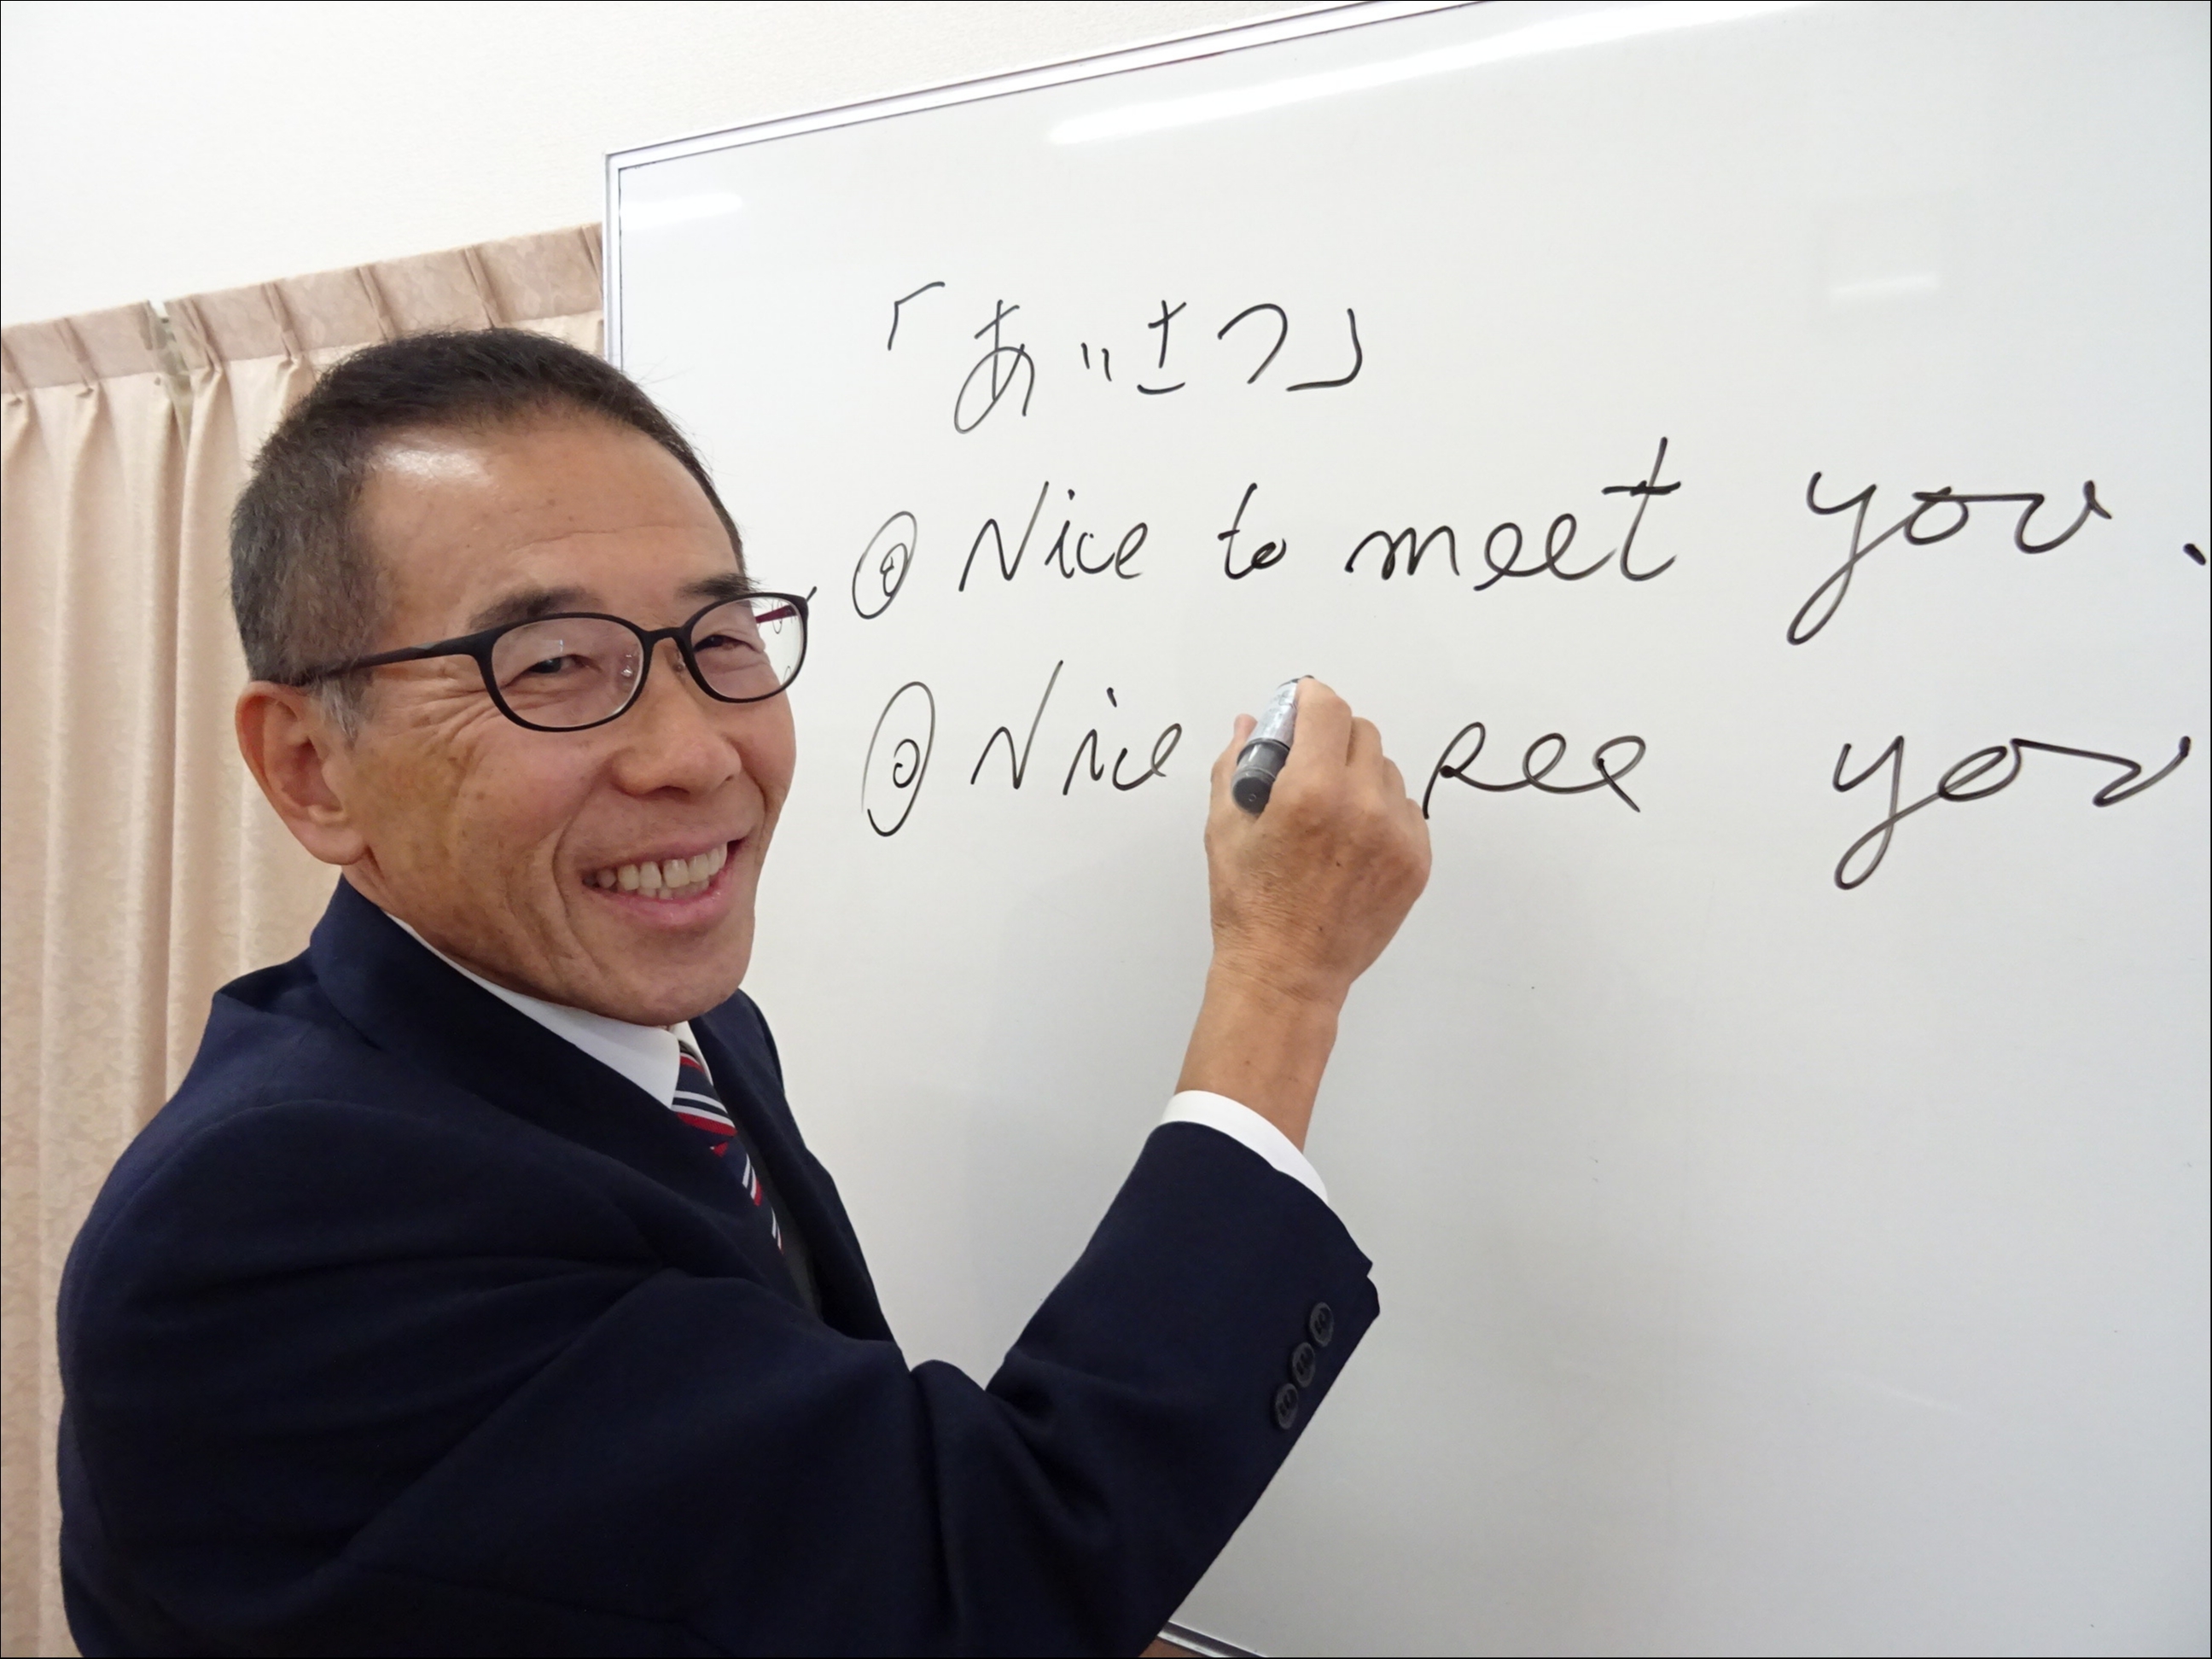 「あいさつ」
◎ Nice to meet you.
◎ Nice see you